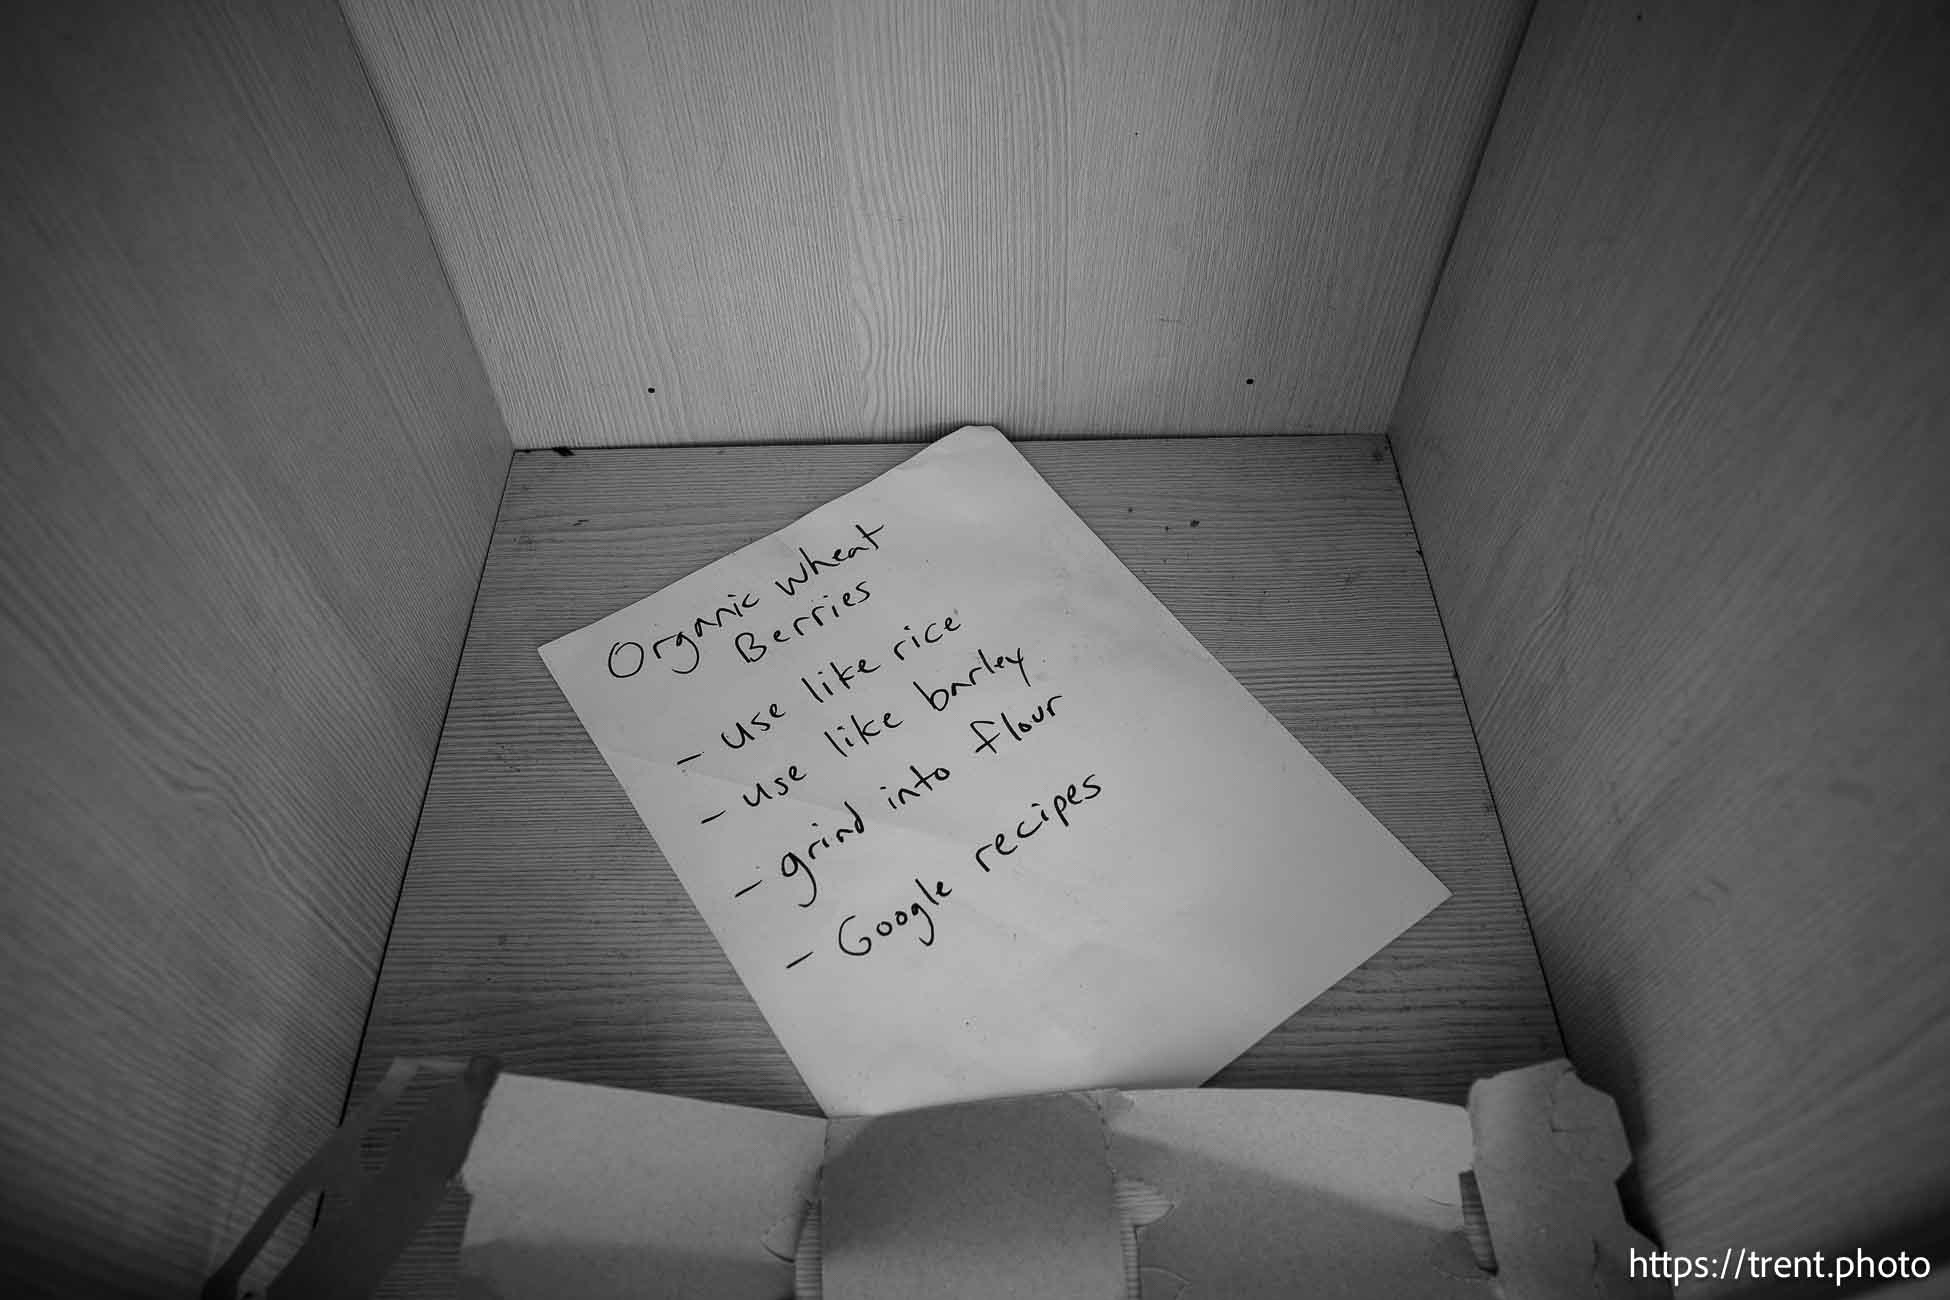 Organic wheat
Berries
- use like rice
- use like barley
- grind into flour
- Google recipes
https://trent.photo